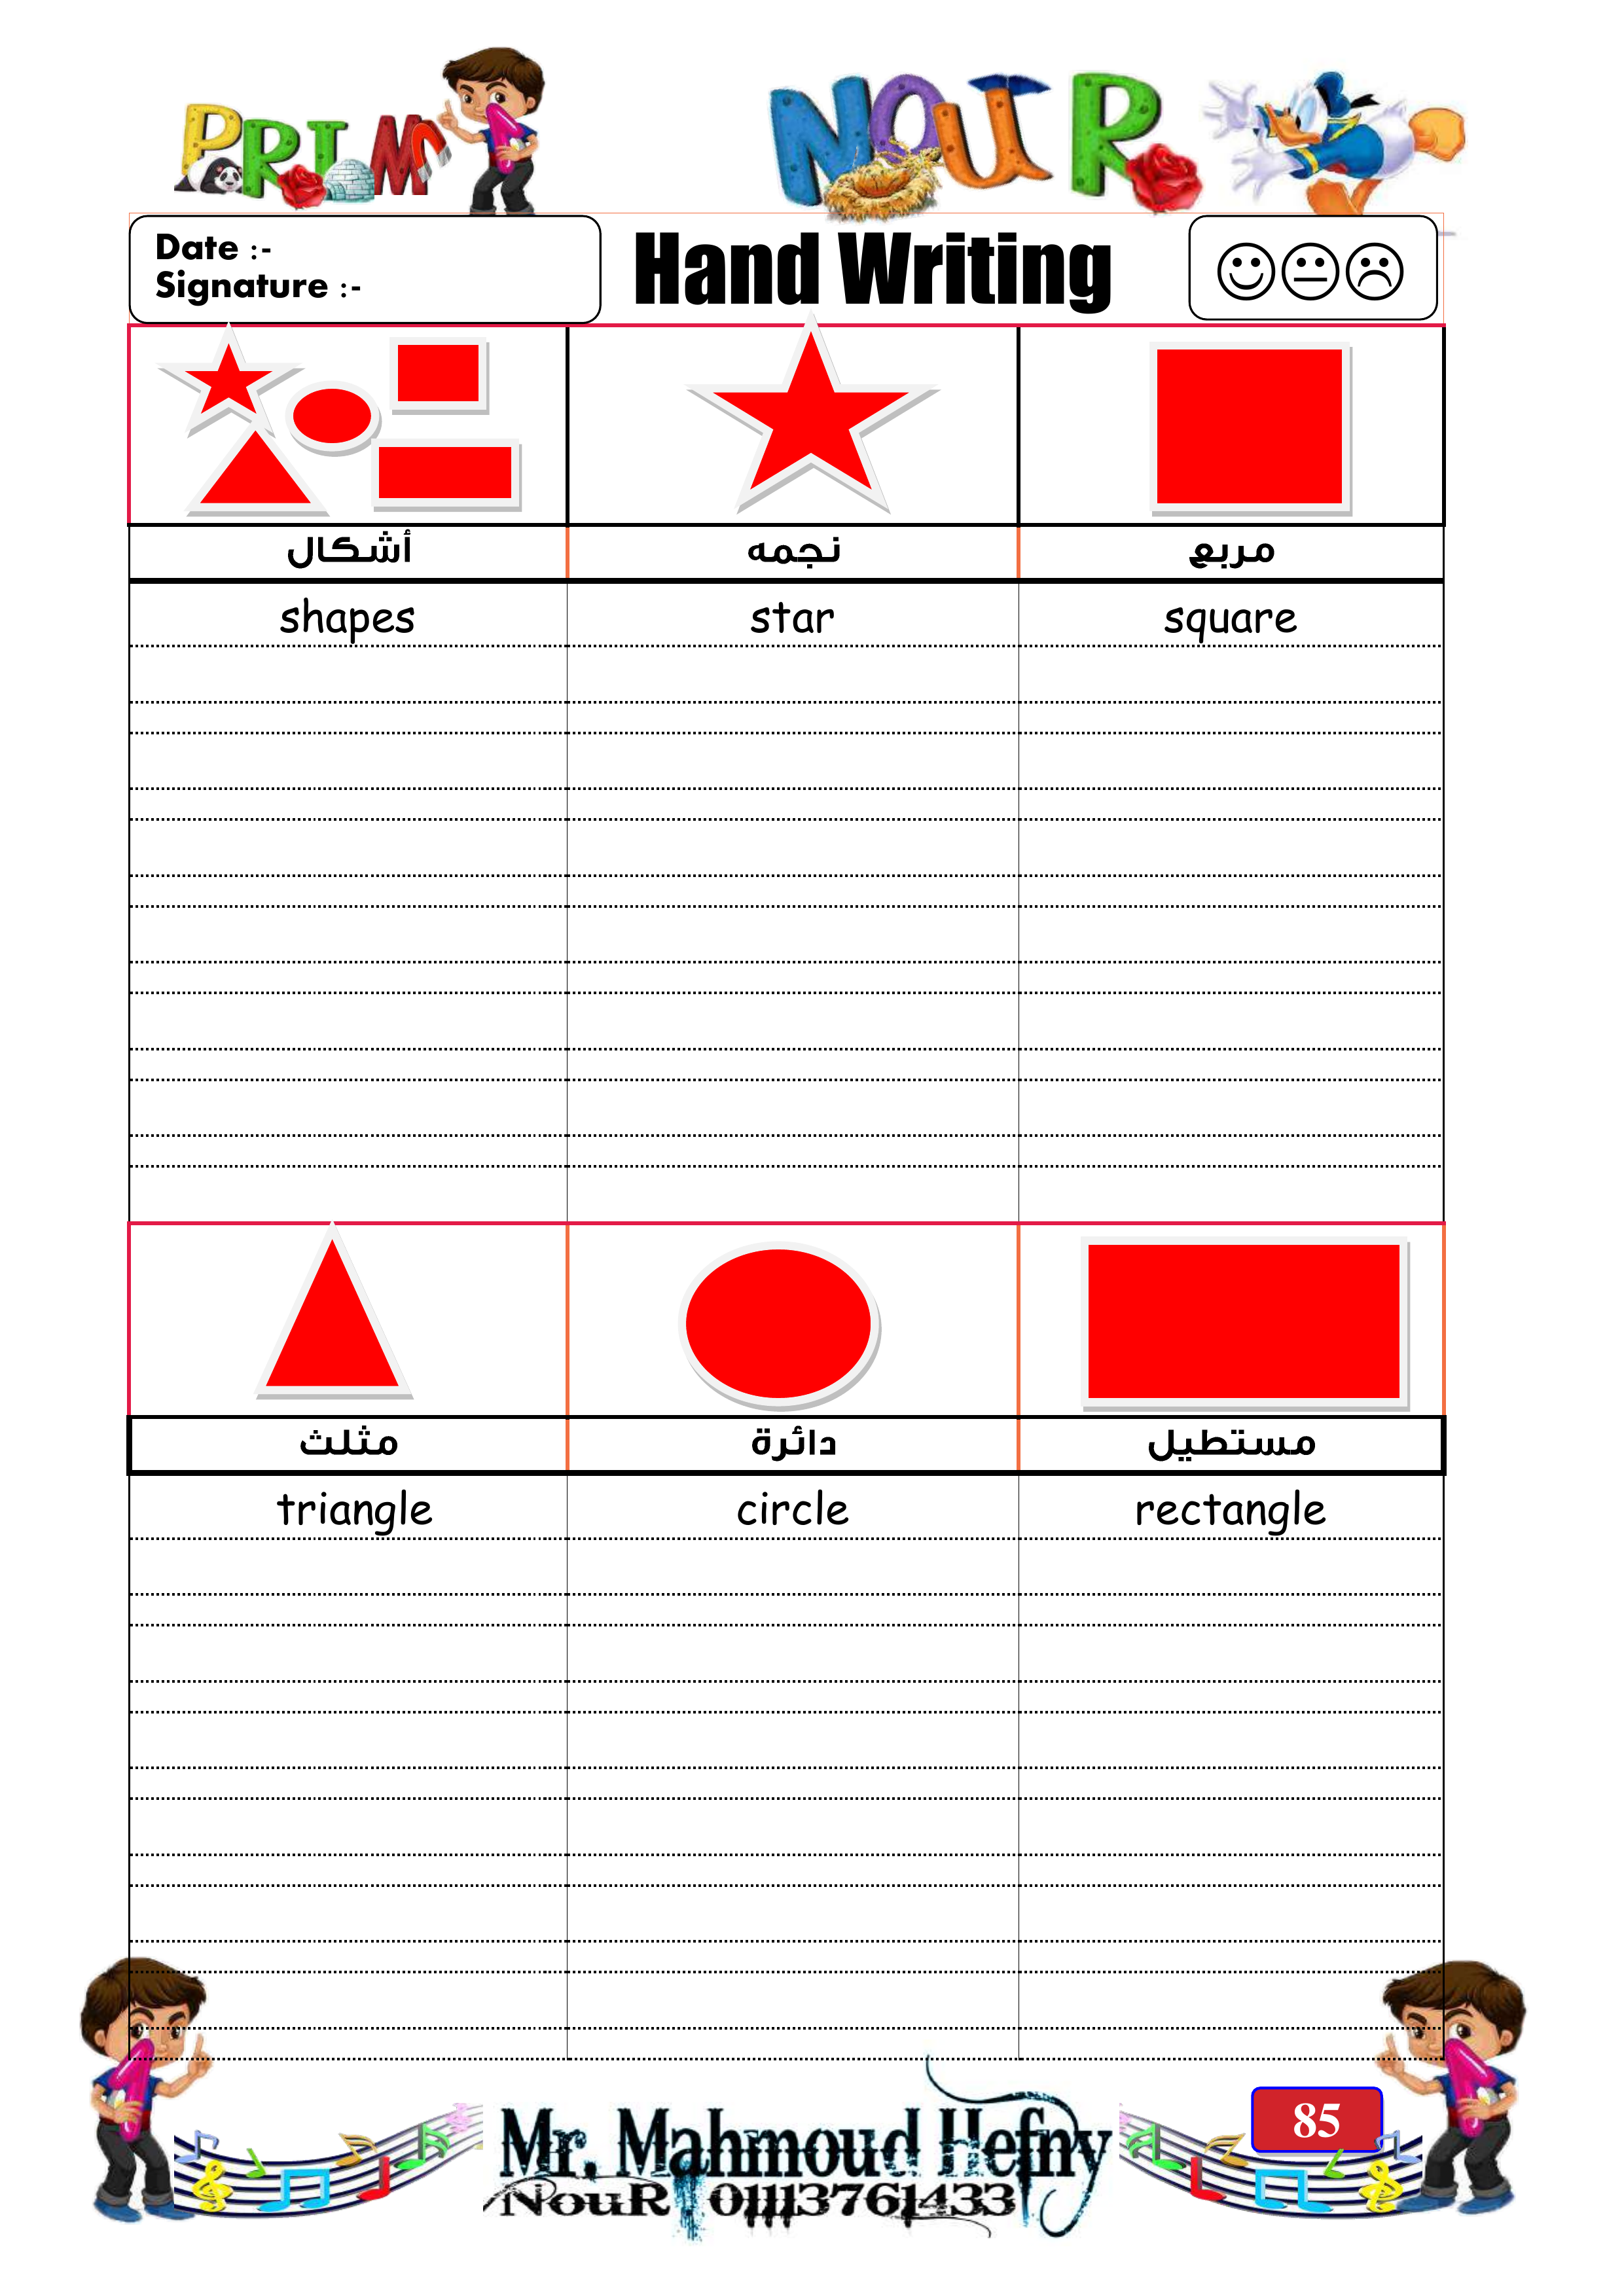 PRIM 1
NOUR
Date :-
Signature :-
Hand Writing
أشكال نجمه مربع
shapes star square
مثلث دائرة مستطيل
triangle circle rectangle
85
Mr. Mahmoud Hefny
NouR : 01113761433